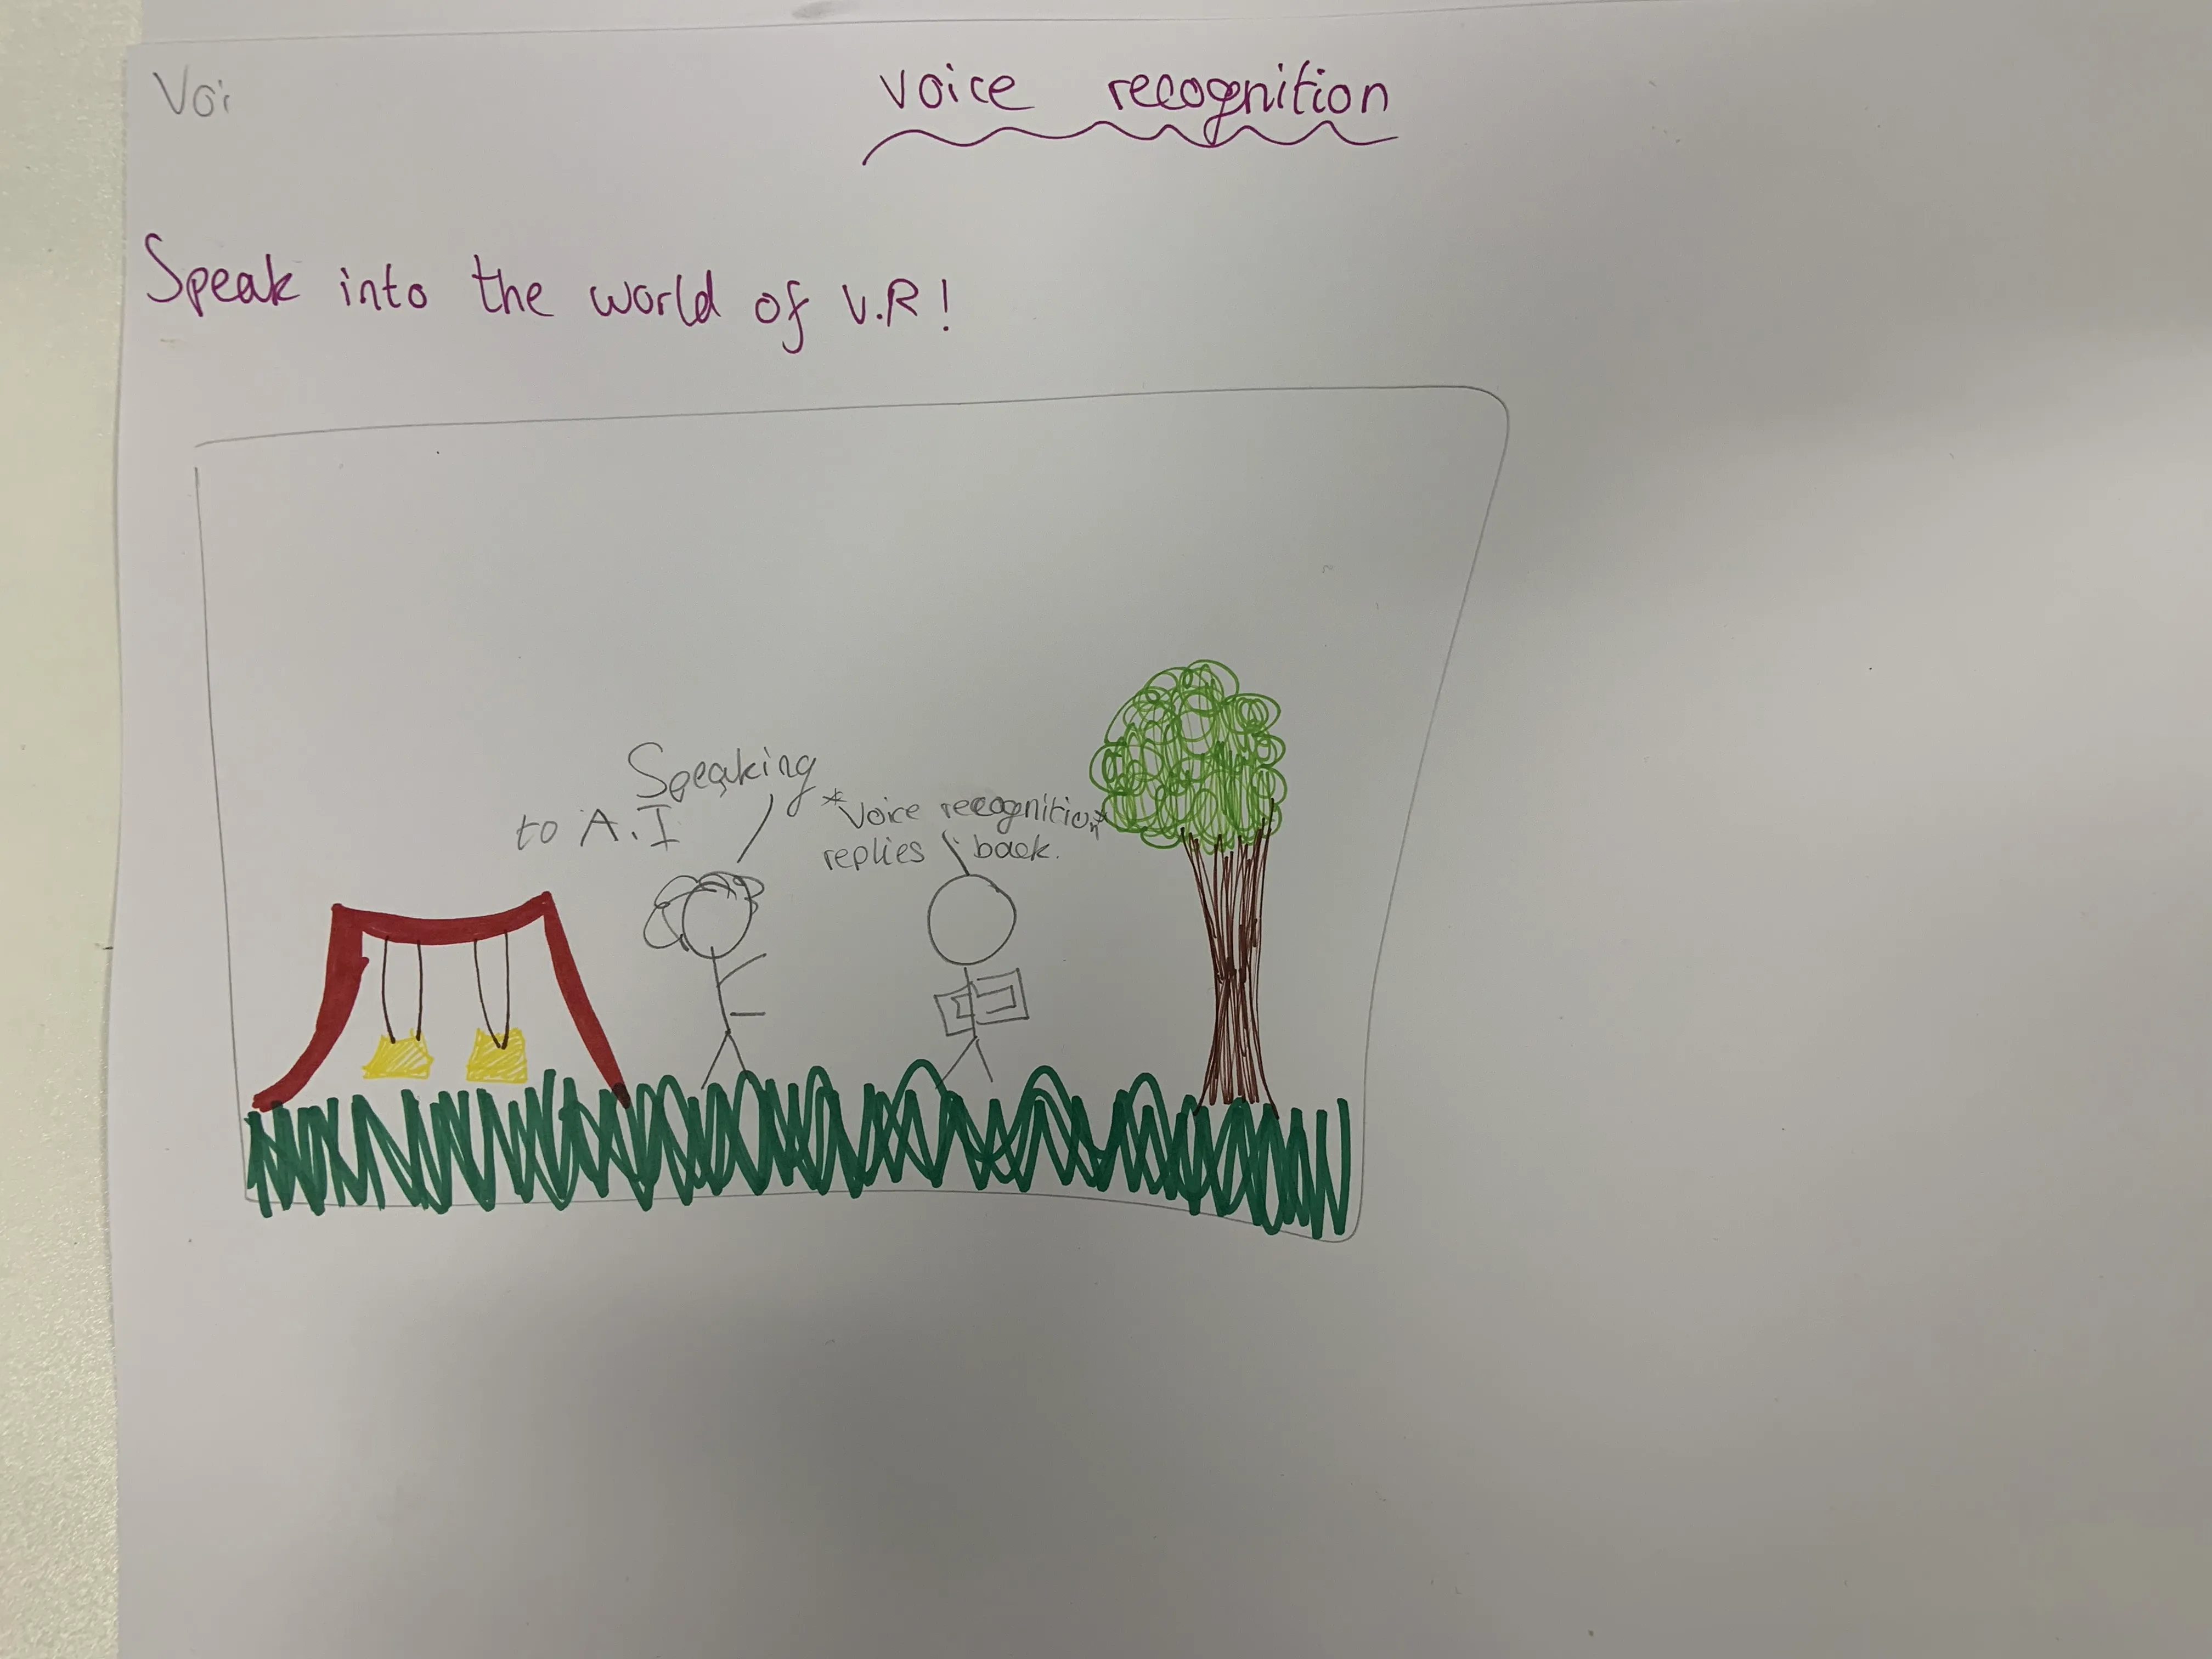 Voi
voice recognition
Speak into the world of V.R!
Speaking
to A.I
*Voice recognition*
replies back.